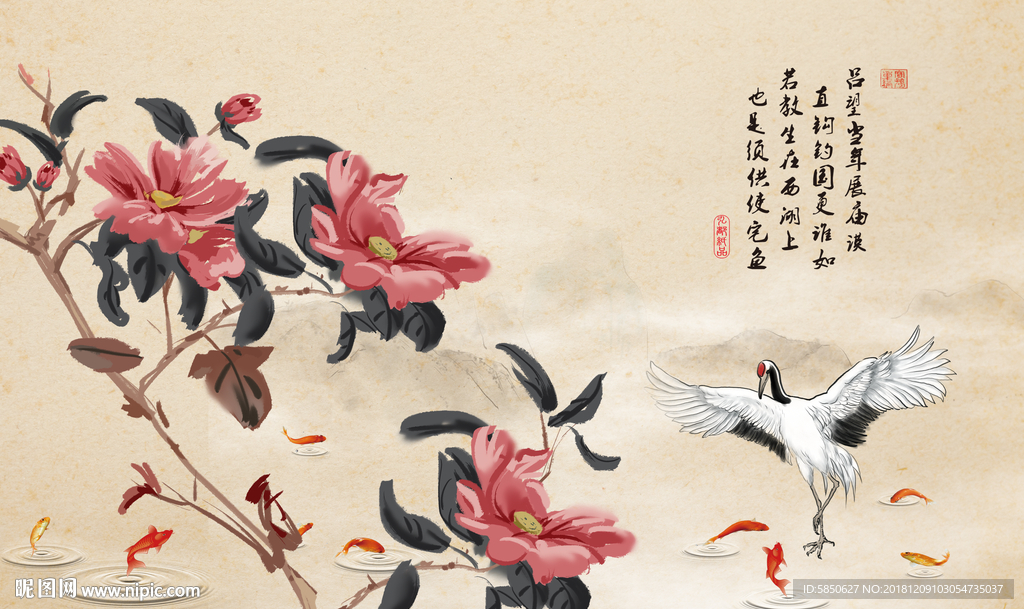 吕望当年展庙谟
直钩钓国更谁如
若教生在西湖上
也是须供使宅鱼
昵图网 www.nipic.com
ID:5850627 NO:20181209103054735037